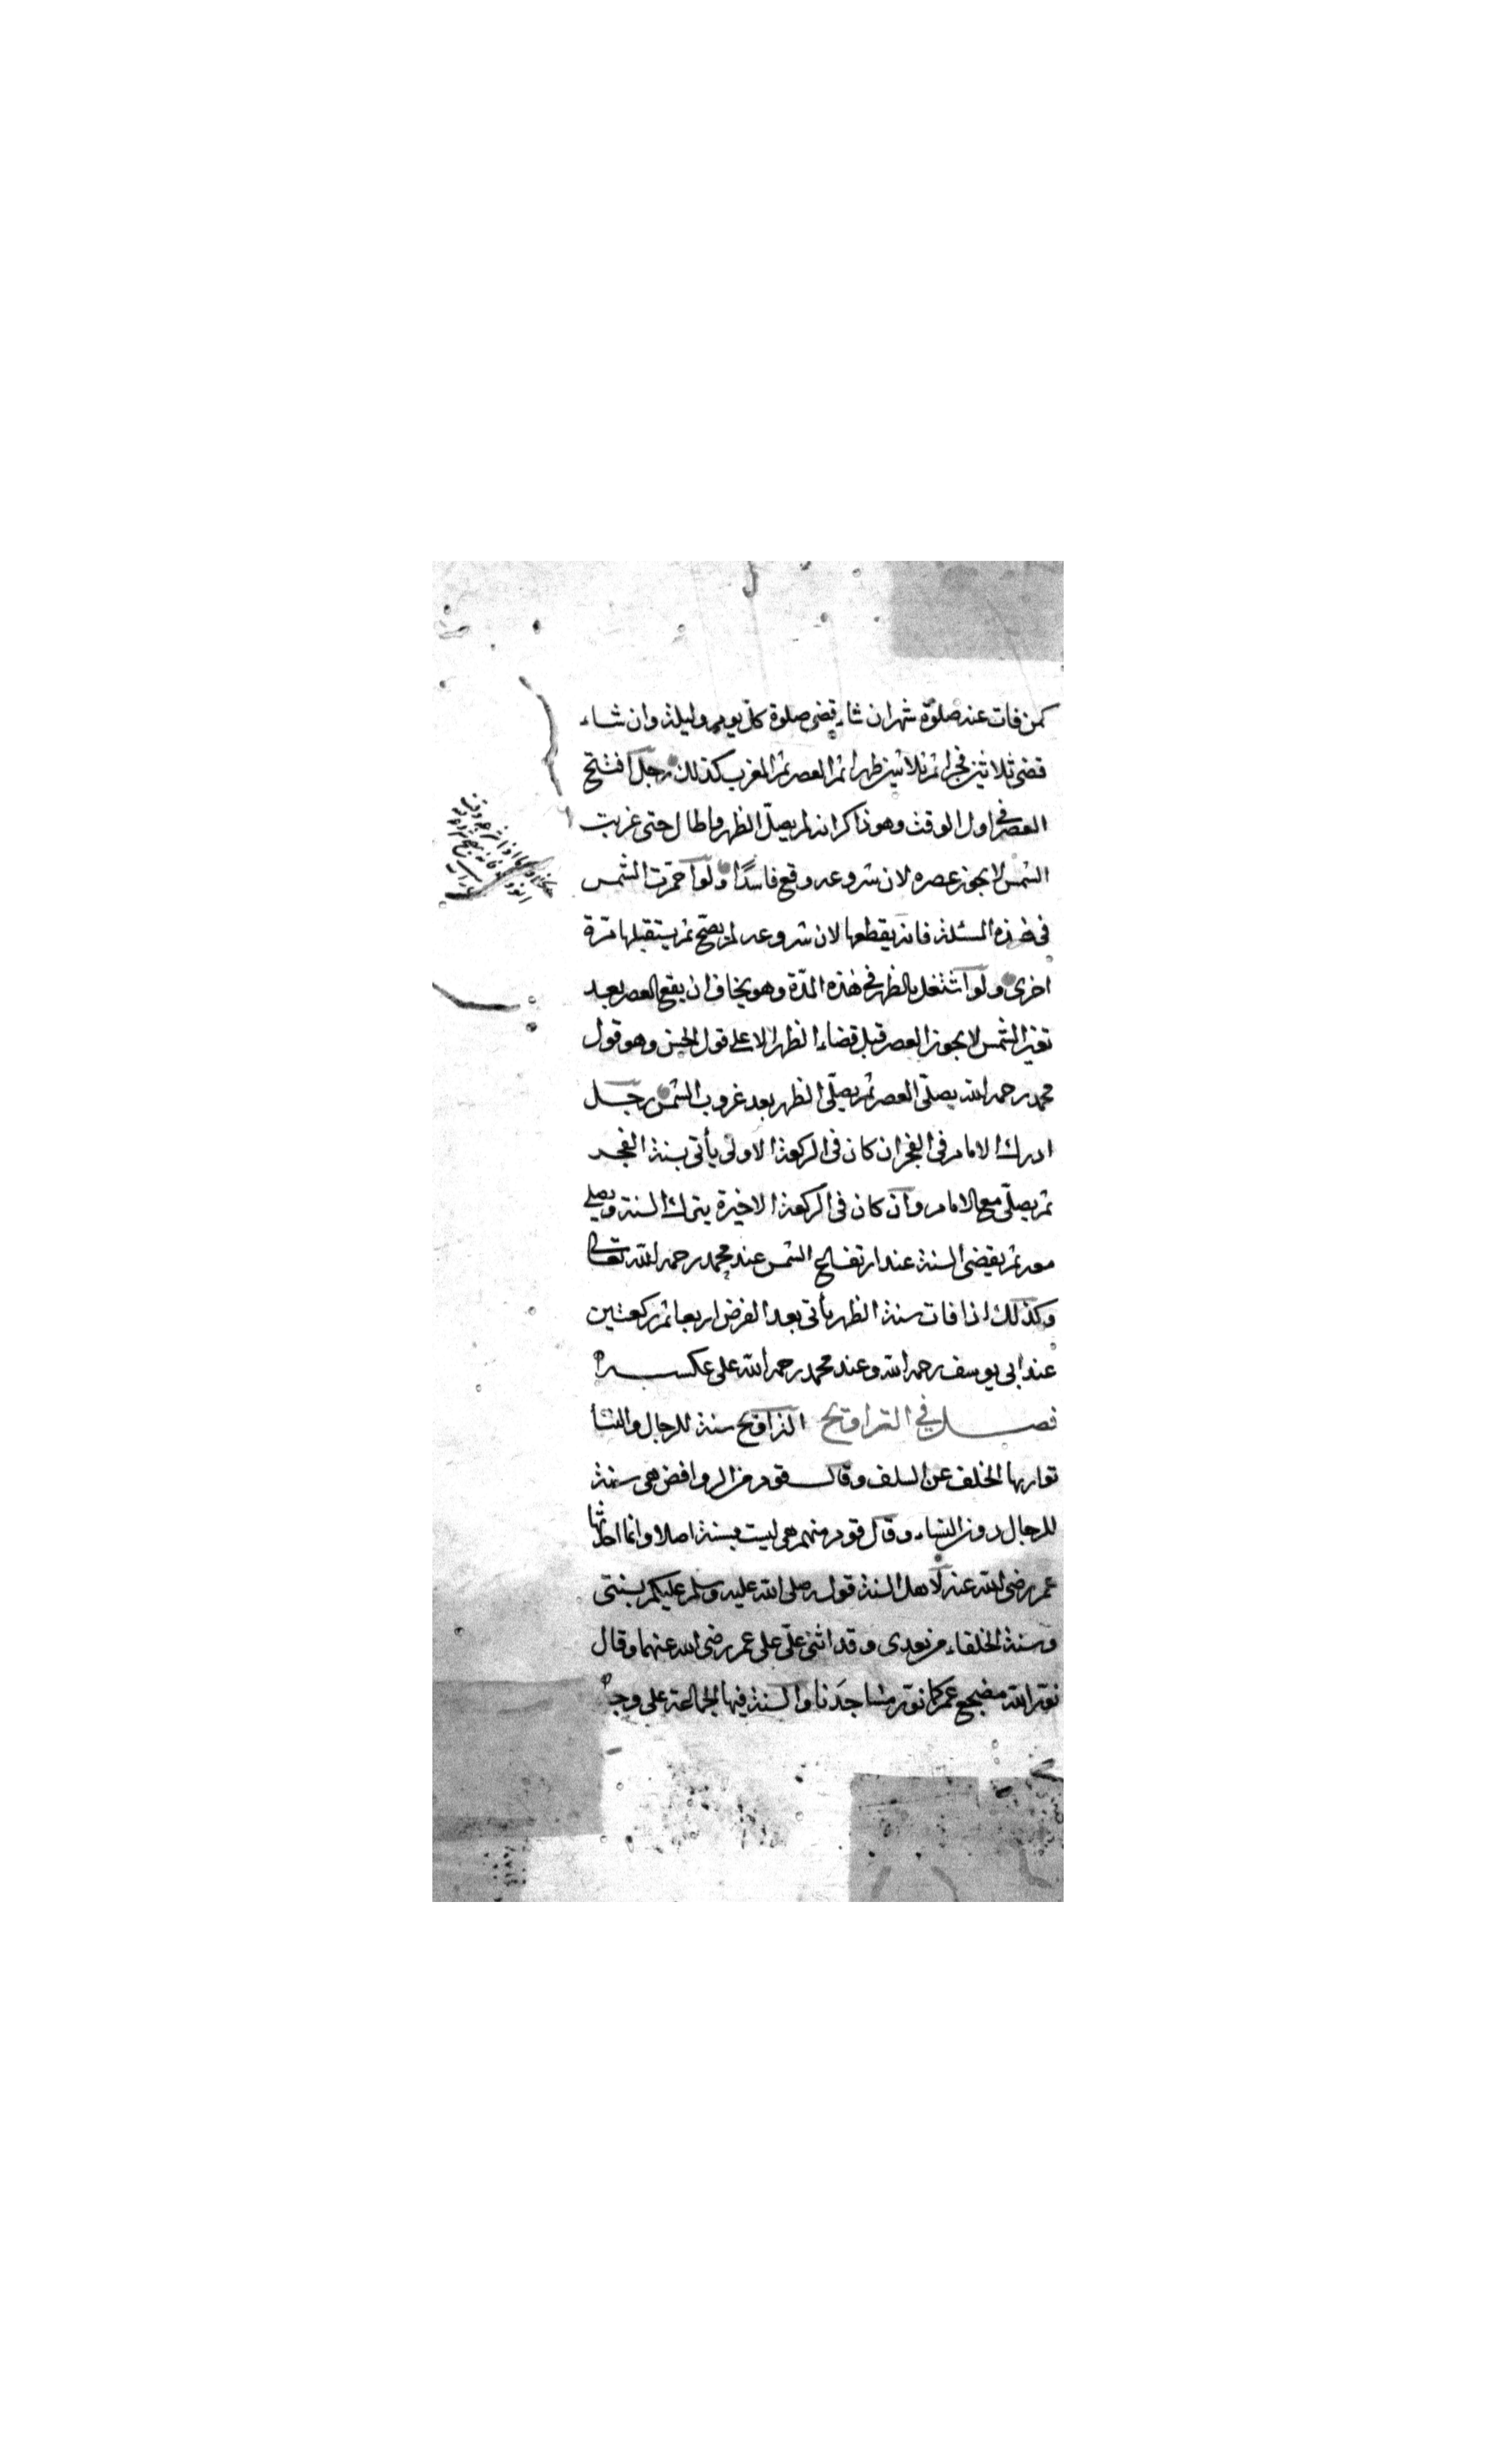 كمن فات عنه صلوة شهر ان شاء قضى صلوة كل يوم وليلة وان شاء
قضى ثلاثين فجرا ثم ثلاثين ظهرا ثم العصر ثم المغرب كذلك رجل افتتح
العصر فى اول الوقت وهو ذاكر انه لم يصلّ الظهر واطال حتى غربت
الشمس لا يجوز عصره لان شروعه وقع فاسدًا ولو احمرّت الشمس
فى هذه المسئلة فانه يقطعها لان شروعه لم يصحّ ثم يستقبلها مرّة
اخرى ولو اشتغل بالظهر فى هذه المدّة وهو يخاف ان يقع العصر بعد
تغيّر الشمس لا يجوز العصر قبل قضاء الظهر الا على قول الحسن وهو قول
محمد رحمه الله يصلّى العصر ثم يصلّى الظهر بعد غروب الشمس رجل
ادرك الامام فى الفجر ان كان فى الركعة الاولى يأتى بسنة الفجر
ثم يصلّى مع الامام وان كان فى الركعة الاخيرة يترك السنة ويصلى
معه ثم يقضى السنة عند ارتفاع الشمس عند محمد رحمه الله تعالى
وكذلك اذا فات سنة الظهر يأتى بعد الفرض اربعا ثم ركعتين
عند ابى يوسف رحمه الله وعند محمد رحمه الله على عكسه
فصل في التراويح التراويح سنة للرجال والنسا
توارثها الخلف عن السلف وقال قوم من الروافض هى سنة
للرجال دون النساء وقال قوم منهم هى ليست بسنة اصلا وانما احدثها
عمر رضى الله عنه لاهل السنة قوله صلى الله عليه وسلم عليكم بسنتى
وسنة الخلفاء من بعدى وقد اثنى علىّ على عمر رضى الله عنهما وقال
نوّر الله مضجع عمر كما نوّر مساجدنا والسنة فيها الجماعة على وجه